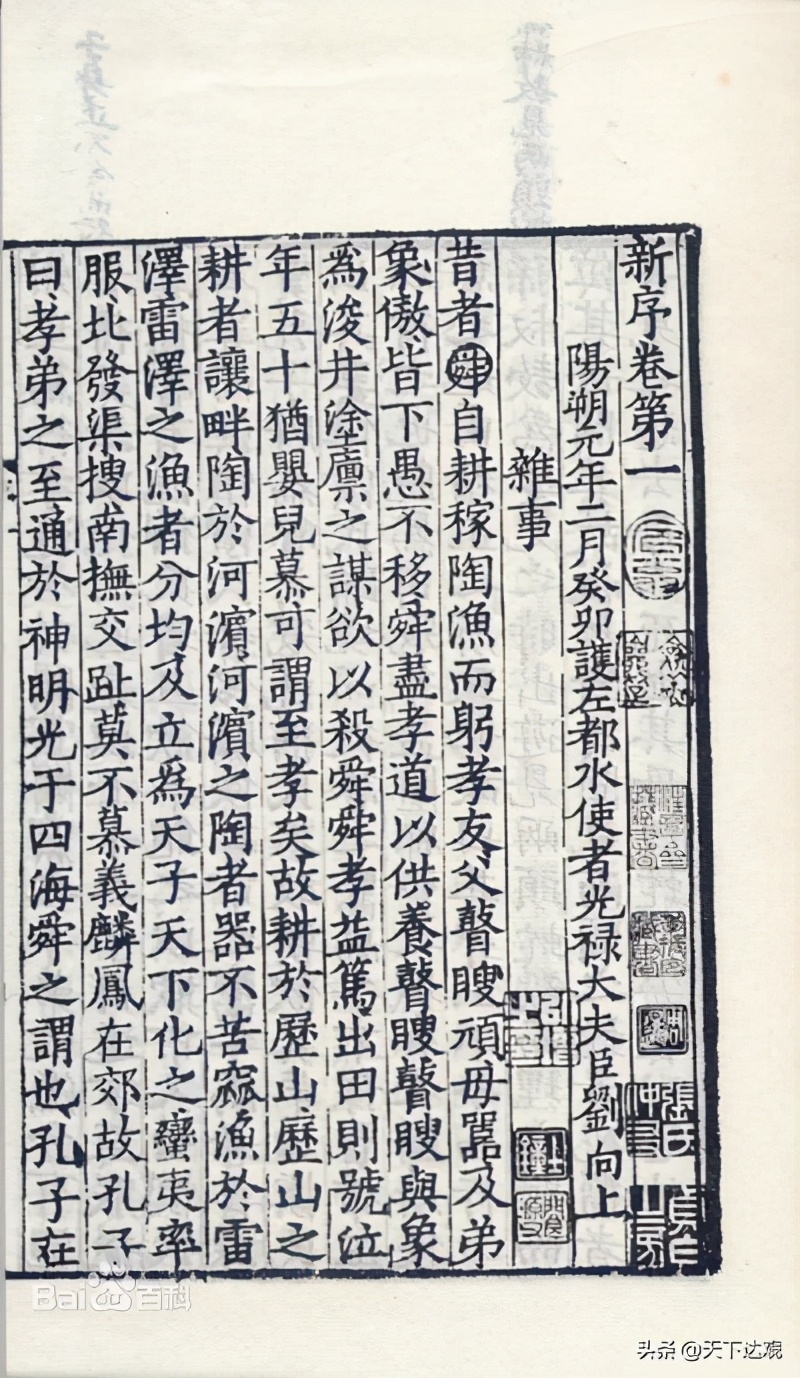 新序卷第一
陽朔元年二月癸卯護左都水使者光祿大夫臣劉向上
雜事
昔者舜自耕稼陶漁而躬孝友父瞽瞍頑母嚚及弟
象傲皆下愚不移舜盡孝道以供養瞽瞍瞽瞍與象
爲浚井塗廩之謀欲以殺舜舜孝益篤出田則號泣
年五十猶嬰兒慕可謂至孝矣故耕於歷山歷山之
耕者讓畔陶於河濱河濱之陶者器不苦窳漁於雷
澤雷澤之漁者分均及立爲天子天下化之蠻夷率
服北發渠搜南撫交趾莫不慕義麟鳳在郊故孔子
曰孝弟之至通於神明光于四海舜之謂也孔子在
張氏
Baidu百科
头条 @天下达观